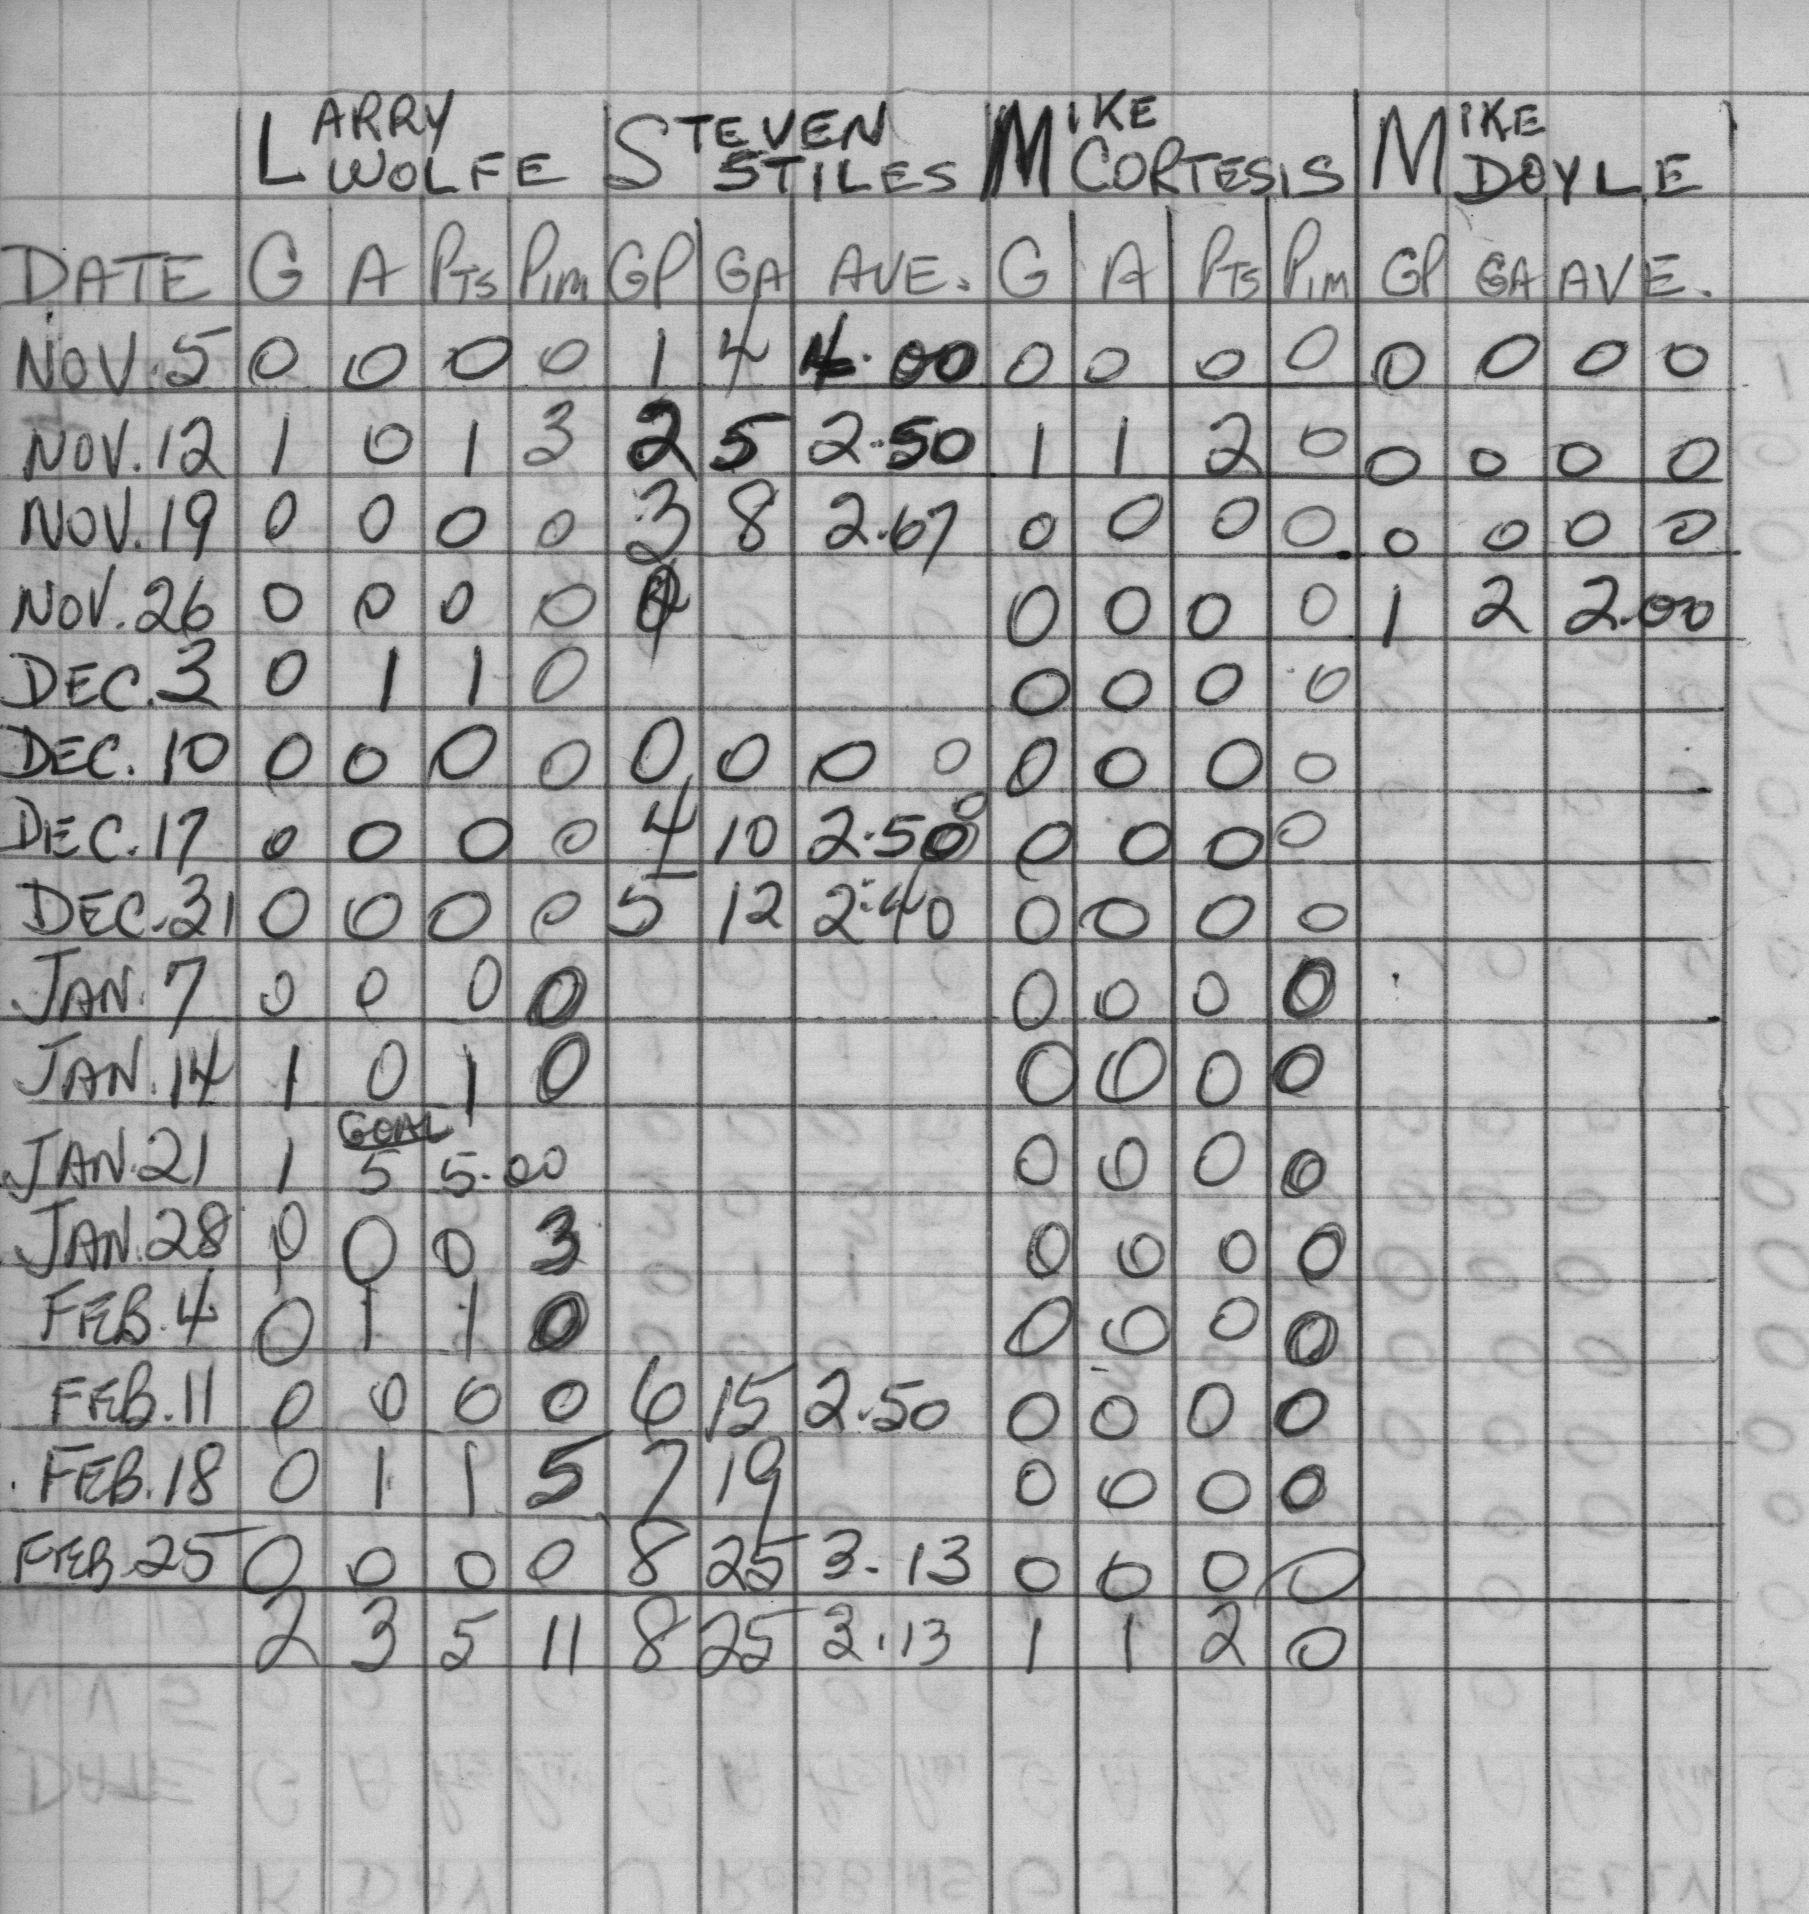 LARRY WOLFE STEVEN STILES MIKE CORTESIS MIKE DOYLE
DATE G A PTS PIM GP GA AVE. G A PTS PIM GP GA AVE.
NOV. 5 0 0 0 0 1 4 4.00 0 0 0 0 0 0 0 0
NOV. 12 1 0 1 3 2 5 2.50 1 1 2 0 0 0 0 0
NOV. 19 0 0 0 0 3 8 2.67 0 0 0 0 0 0 0 0
NOV. 26 0 0 0 0 0 0 0 0 1 2 2.00
DEC. 3 0 1 1 0 0 0 0 0
DEC. 10 0 0 0 0 0 0 0 0 0 0 0 0
DEC. 17 0 0 0 0 4 10 2.50 0 0 0 0
DEC. 31 0 0 0 0 5 12 2.40 0 0 0 0
JAN. 7 0 0 0 0 0 0 0 0
JAN. 14 1 0 1 0 0 0 0 0
GOAL
JAN. 21 1 5 5.00 0 0 0 0
JAN. 28 0 0 0 3 0 0 0 0
FEB. 4 0 1 1 0 0 0 0 0
FEB. 11 0 0 0 0 6 15 2.50 0 0 0 0
FEB. 18 0 1 1 5 7 19 0 0 0 0
FEB. 25 0 0 0 0 8 25 3.13 0 0 0 0
2 3 5 11 8 25 3.13 1 1 2 0